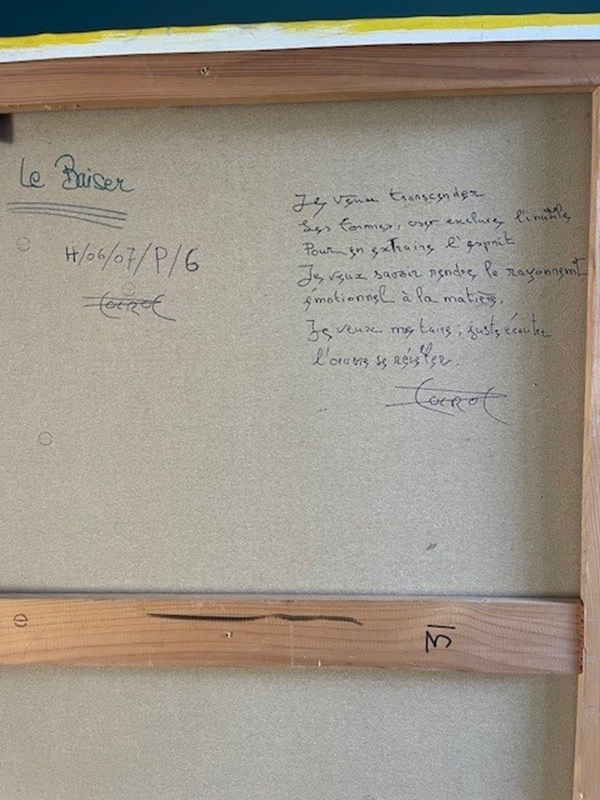 Le Baiser
H/06/07/P/6
Je veux transcender
Les formes, oser exclure l'inutile
Pour en extraire l'esprit
Je veux savoir rendre le rayonnement
émotionnel à la matière.
Je veux me taire ; juste écouter
l'œuvre se révéler.
31